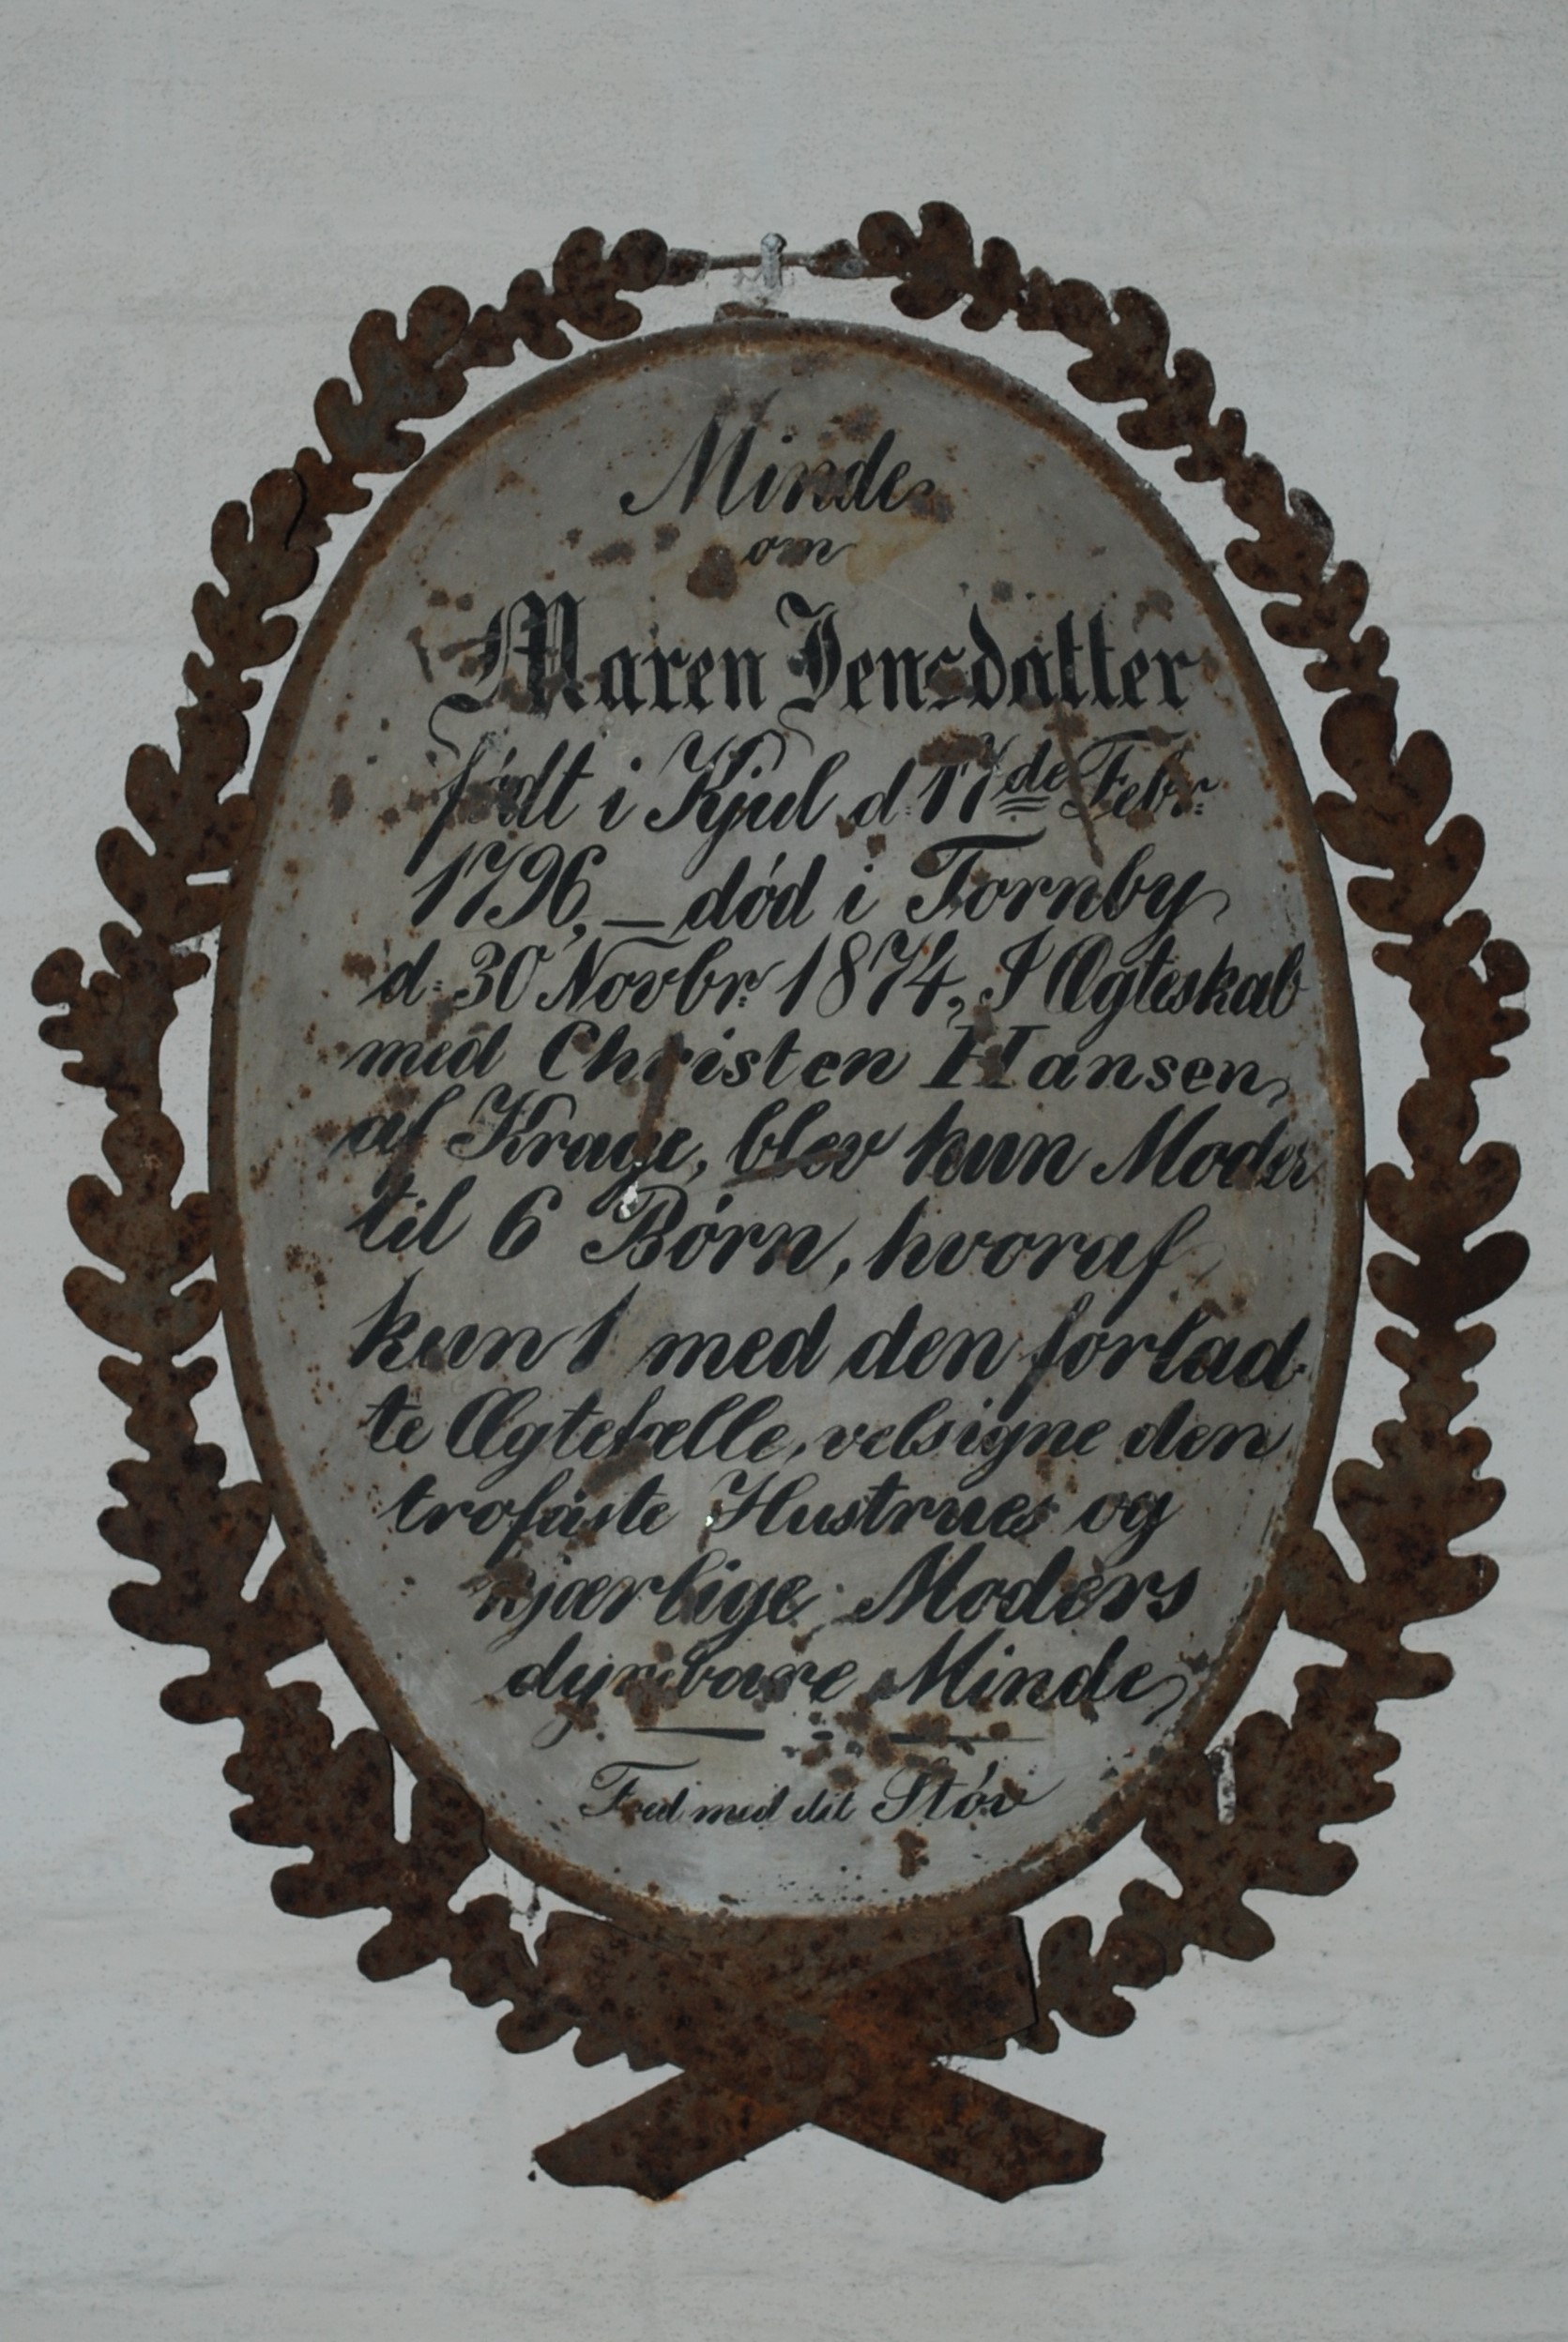 Minde
om
Maren Jensdatter
født i Kjul d: 17de Febr:
1796, — død i Tornby
d: 30 Novbr: 1874, I Ægteskab
med Christen Hansen,
af Krage, blev hun Moder
til 6 Børn, hvoraf
kun 1 med den forlad-
te Ægtefælle, velsigne den
trofaste Hustrues og
kjærlige Moders
dyrebare Minde,
Fred med dit Støv